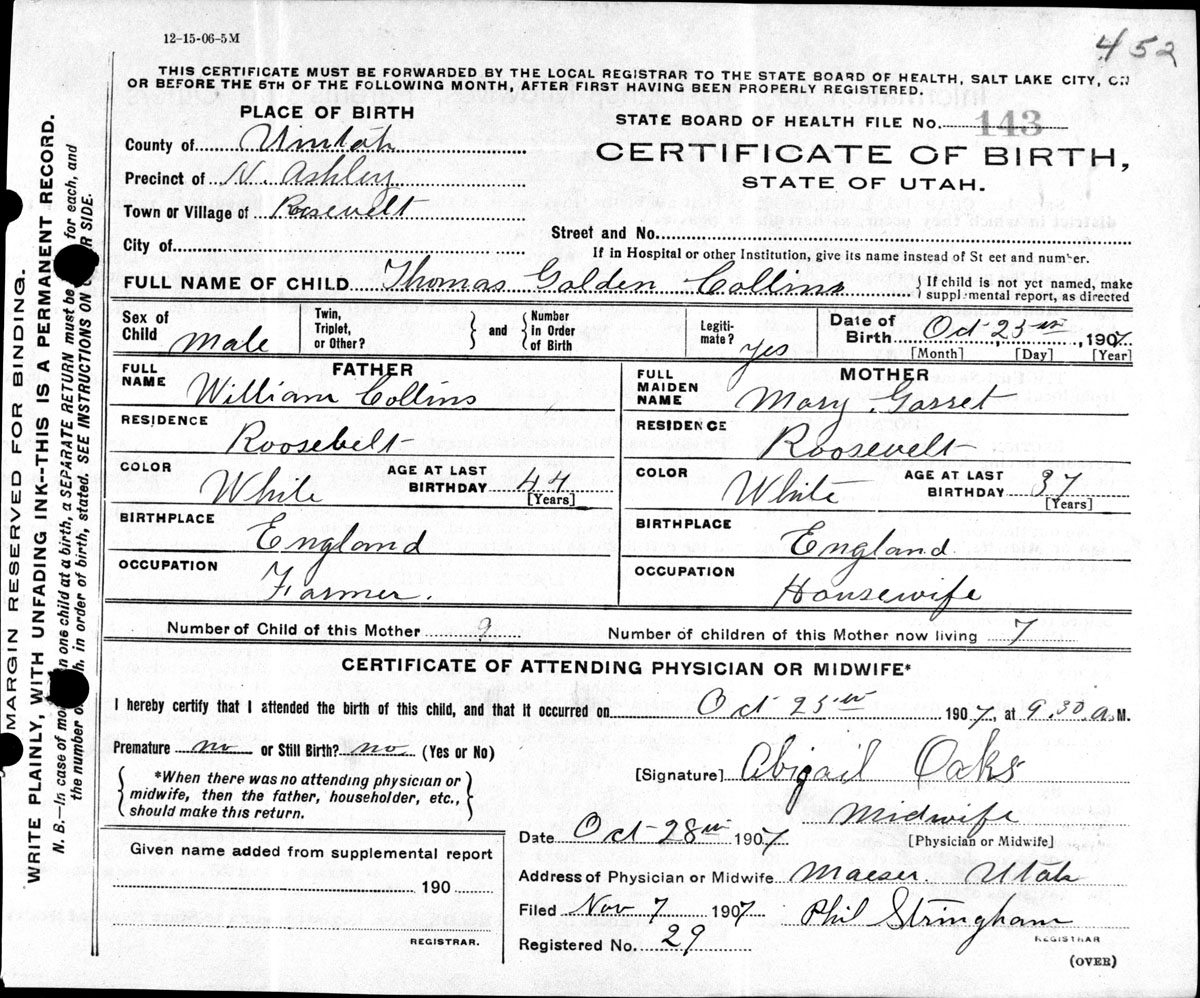 12-15-06-5M
452
THIS CERTIFICATE MUST BE FORWARDED BY THE LOCAL REGISTRAR TO THE STATE BOARD OF HEALTH, SALT LAKE CITY, ON
OR BEFORE THE 5TH OF THE FOLLOWING MONTH, AFTER FIRST HAVING BEEN PROPERLY REGISTERED.
PLACE OF BIRTH
STATE BOARD OF HEALTH FILE No. 143
County of Uintah
CERTIFICATE OF BIRTH,
STATE OF UTAH.
Precinct of N Ashley
Town or Village of Rosevelt
Street and No.
City of
If in Hospital or other Institution, give its name instead of St eet and number.
FULL NAME OF CHILD Thomas Golden Collins
{ If child is not yet named, make
supplemental report, as directed
Sex of Child Male
Twin, Triplet, or Other? } and { Number in Order of Birth
Legiti-mate? yes
Date of Birth Oct 25th, 1907.
[Month] [Day] [Year]
FATHER
FULL NAME William Collins
RESIDENCE Roosebelt
COLOR White AGE AT LAST BIRTHDAY 44 [Years]
BIRTHPLACE England
OCCUPATION Farmer.
MOTHER
FULL MAIDEN NAME Mary Gasset
RESIDENCE Roosevelt
COLOR White AGE AT LAST BIRTHDAY 37 [Years]
BIRTHPLACE England
OCCUPATION Housewife
Number of Child of this Mother 9 Number of children of this Mother now living 7
CERTIFICATE OF ATTENDING PHYSICIAN OR MIDWIFE*
I hereby certify that I attended the birth of this child, and that it occurred on Oct 25th 1907, at 9.30 a.M.
Premature no or Still Birth? no (Yes or No)
{ *When there was no attending physician or
midwife, then the father, householder, etc.,
should make this return. }
[Signature] Abigail Oaks
Midwife
[Physician or Midwife]
Date Oct 28th 1907.
Given name added from supplemental report
190
REGISTRAR.
Address of Physician or Midwife Maeser Utah
Filed Nov 7 1907 Phil Stringham
REGISTRAR
Registered No. 29
(OVER)
MARGIN RESERVED FOR BINDING.
WRITE PLAINLY, WITH UNFADING INK--THIS IS A PERMANENT RECORD.
N. B.—In case of mo n one child at a birth, a SEPARATE RETURN must be for each, and
the number o h. in order of birth, stated. SEE INSTRUCTIONS ON R SIDE.